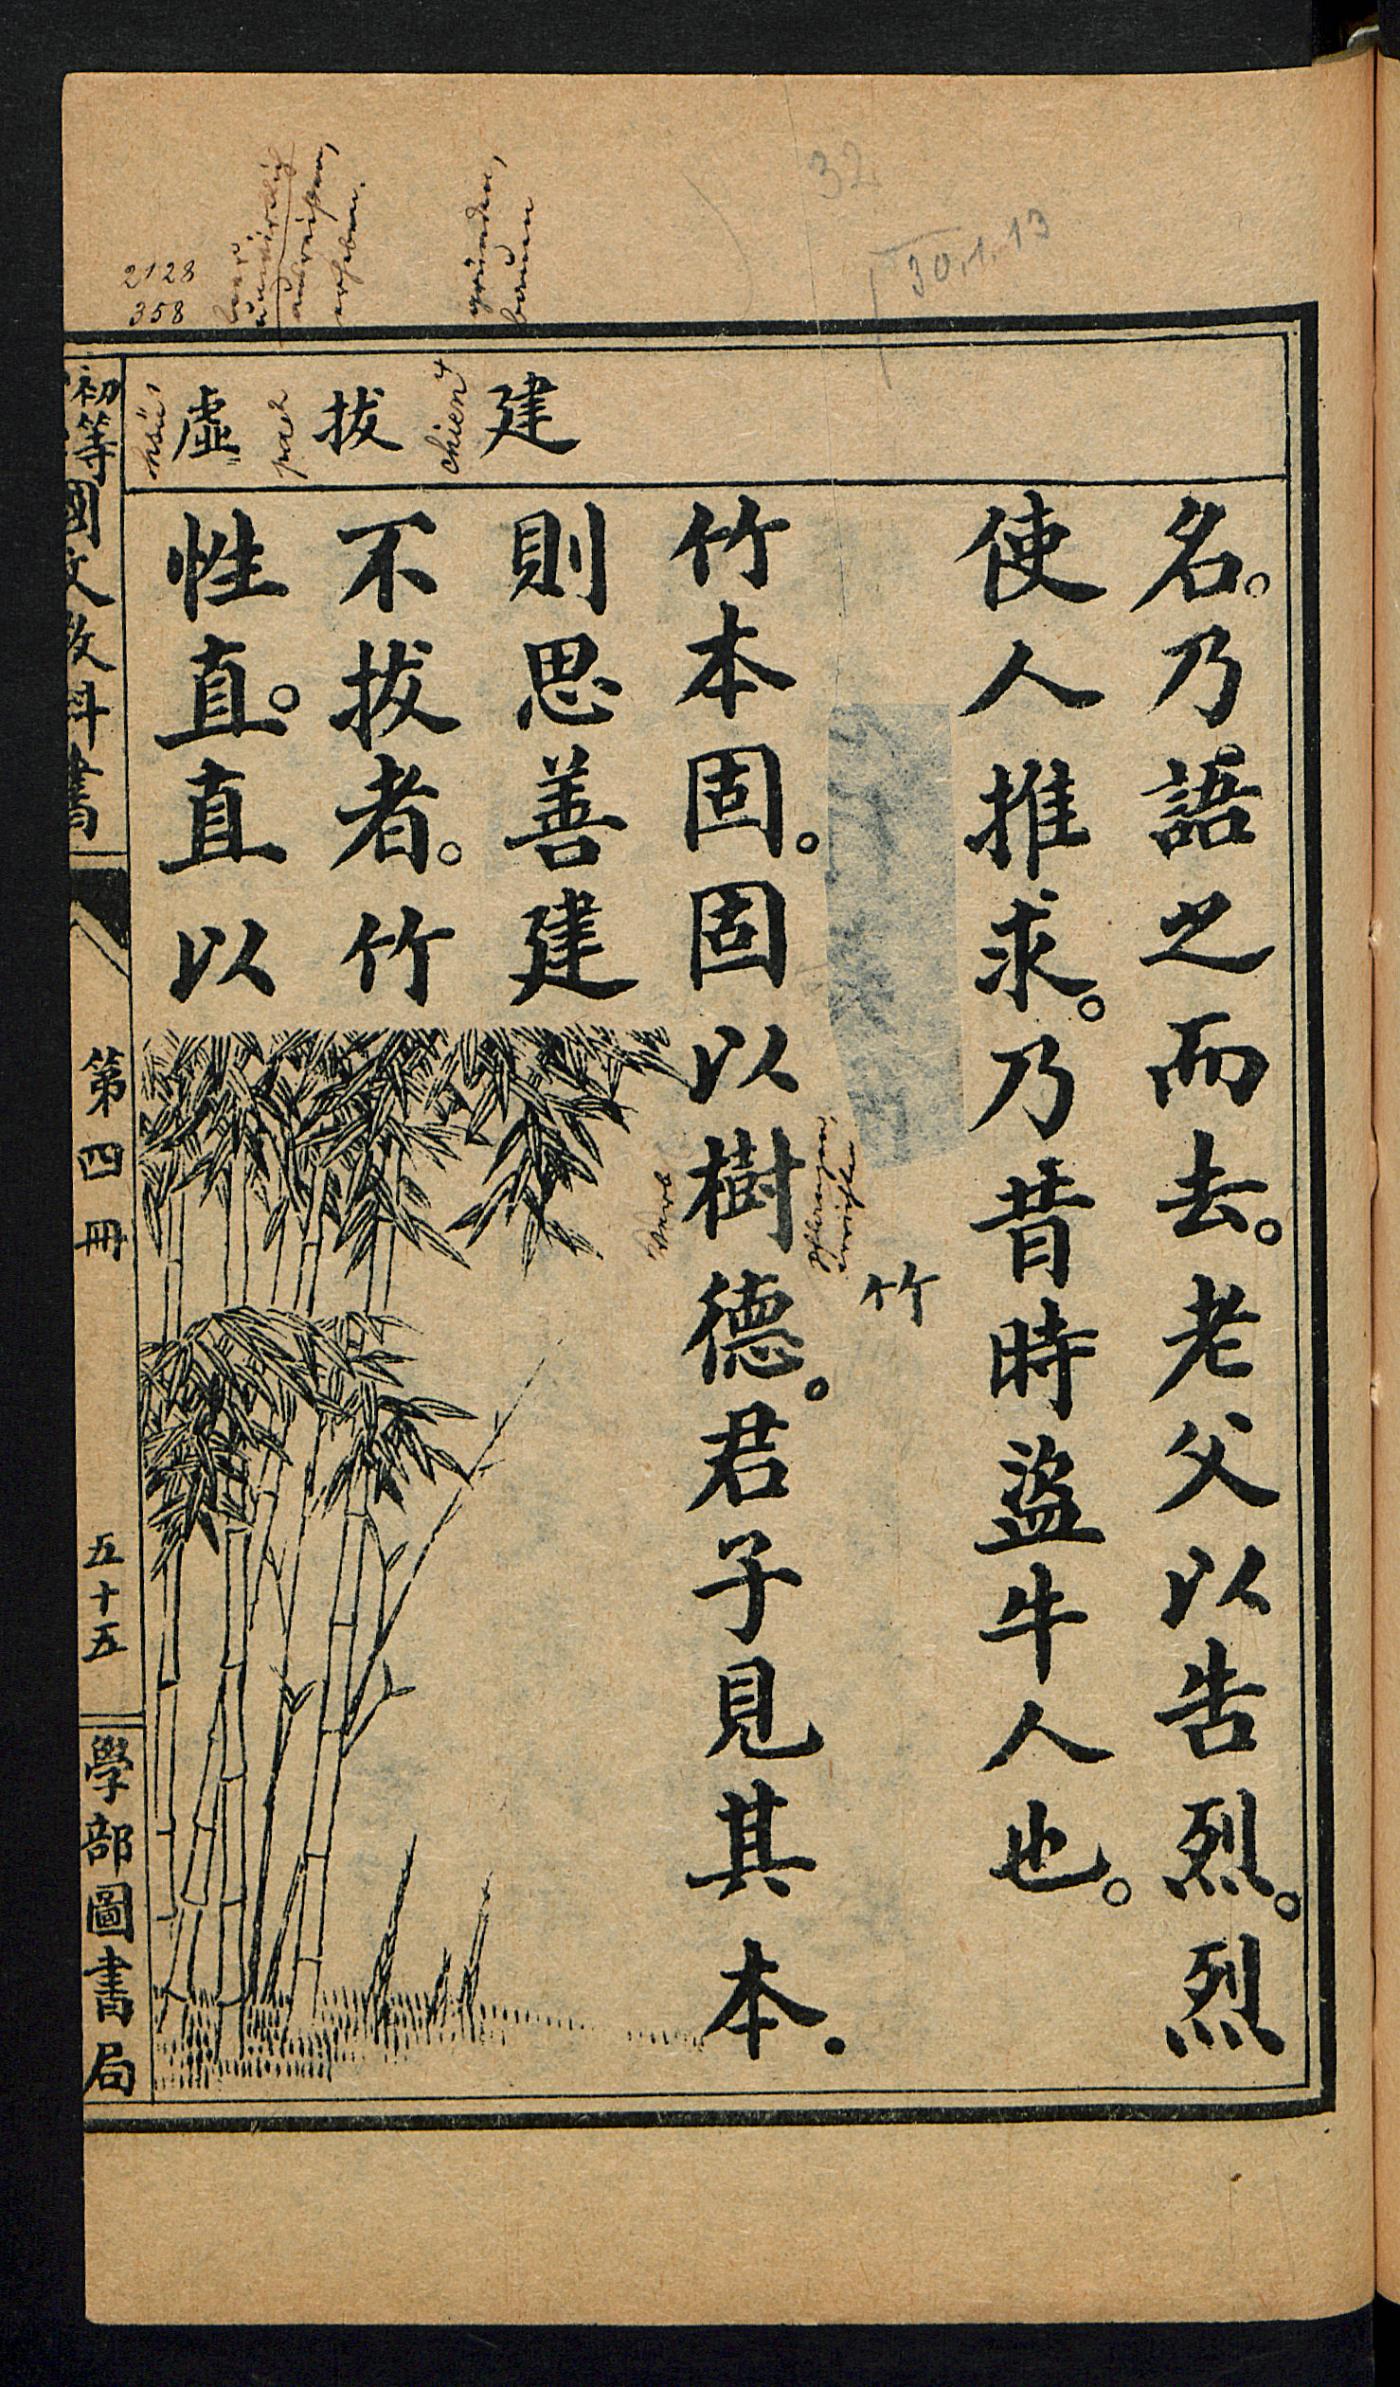 32
30.1.13
gründen,
bauen
2128
358
建
chien4
拔
pa2
虛
hsü1
名。乃語之而去。老父以告烈。烈
使人推求。乃昔時盜牛人也。
竹
竹本固。固以樹德。君子見其本.
Verb
則思善建
不拔者。竹
性直。直以
初等國文教科書
第四冊
五十五
學部圖書局